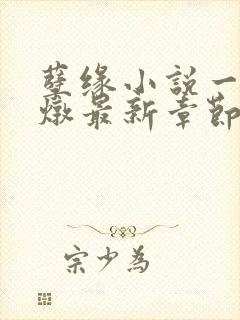 孽缘小説一
燉最新章節
宗少為